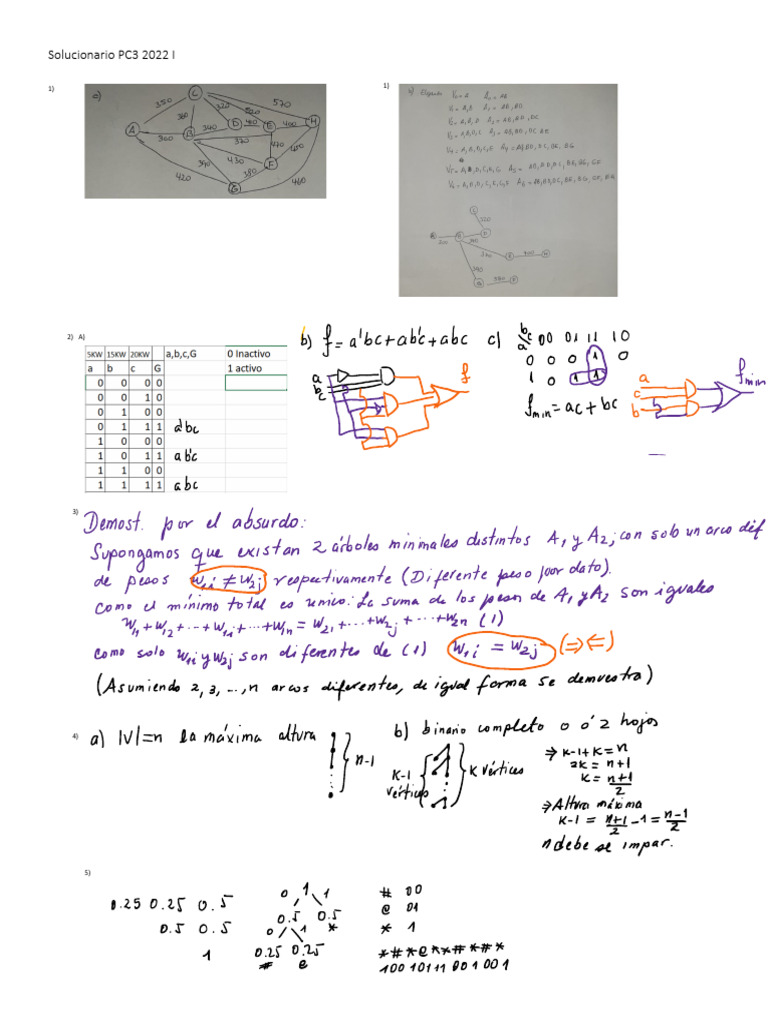 Solucionario PC3 2022 I
1)
a)
350
570
C
320
520
360
A
B
340
D
400
E
400
H
300
370
470
400
390
430
F
420
380
G
460
1)
V₁ = A,B A₁ = AB, BD
320
390
400
380
2) A)
5KW 15KW 20KW a,b,c,G 0 Inactivo
a b c G 1 activo
0 0 0 0
0 0 1 0
0 1 0 0
0 1 1 1 a'bc
1 0 0 0
1 0 1 1 ab'c
1 1 0 0
1 1 1 1 abc
b) f = a'bc + ab'c + abc
a
b
c
f
c) bc 00 01 11 10
a
0 0 0 1 0
1 0 1 1
f min = ac + bc
a
c
b
f min
3)
Demost. por el absurdo:
Supongamos que existan 2 árboles minimales distintos A₁ y A₂; con solo un arco dif
de pesos w₁ᵢ ≠ w₂ⱼ respectivamente (Diferente peso por dato).
Como el mínimo total es unico: La suma de los pesos de A₁ y A₂ son iguales
w₁₁ + w₁₂ + ·· + w₁ᵢ + ·· + w₁ₙ = w₂₁ + ··· + w₂ⱼ + ··· + w₂ₙ (1)
como solo w₁ᵢ y w₂ⱼ son diferentes de (1) w₁ᵢ = w₂ⱼ (⇒⇐)
(Asumiendo 2, 3, ..., n arcos diferentes, de igual forma se demuestra)
4)
a) |V|=n la máxima altura
n-1
b) binario completo 0 ó 2 hojos
K-1
vértices
K vértices
⇒ K-1+K = n
2K = n+1
K = n+1/2
⇒ Altura máxima
K-1 = n+1/2 - 1 = n-1/2
n debe se impar.
5)
0.25 0.25 0.5
0.5 0.5
1
0 1 1
0.5 0.5
0 1 *
0.25 0.25
# @
# 00
@ 01
* 1
*#*@**#*#*
100 10111 001 001